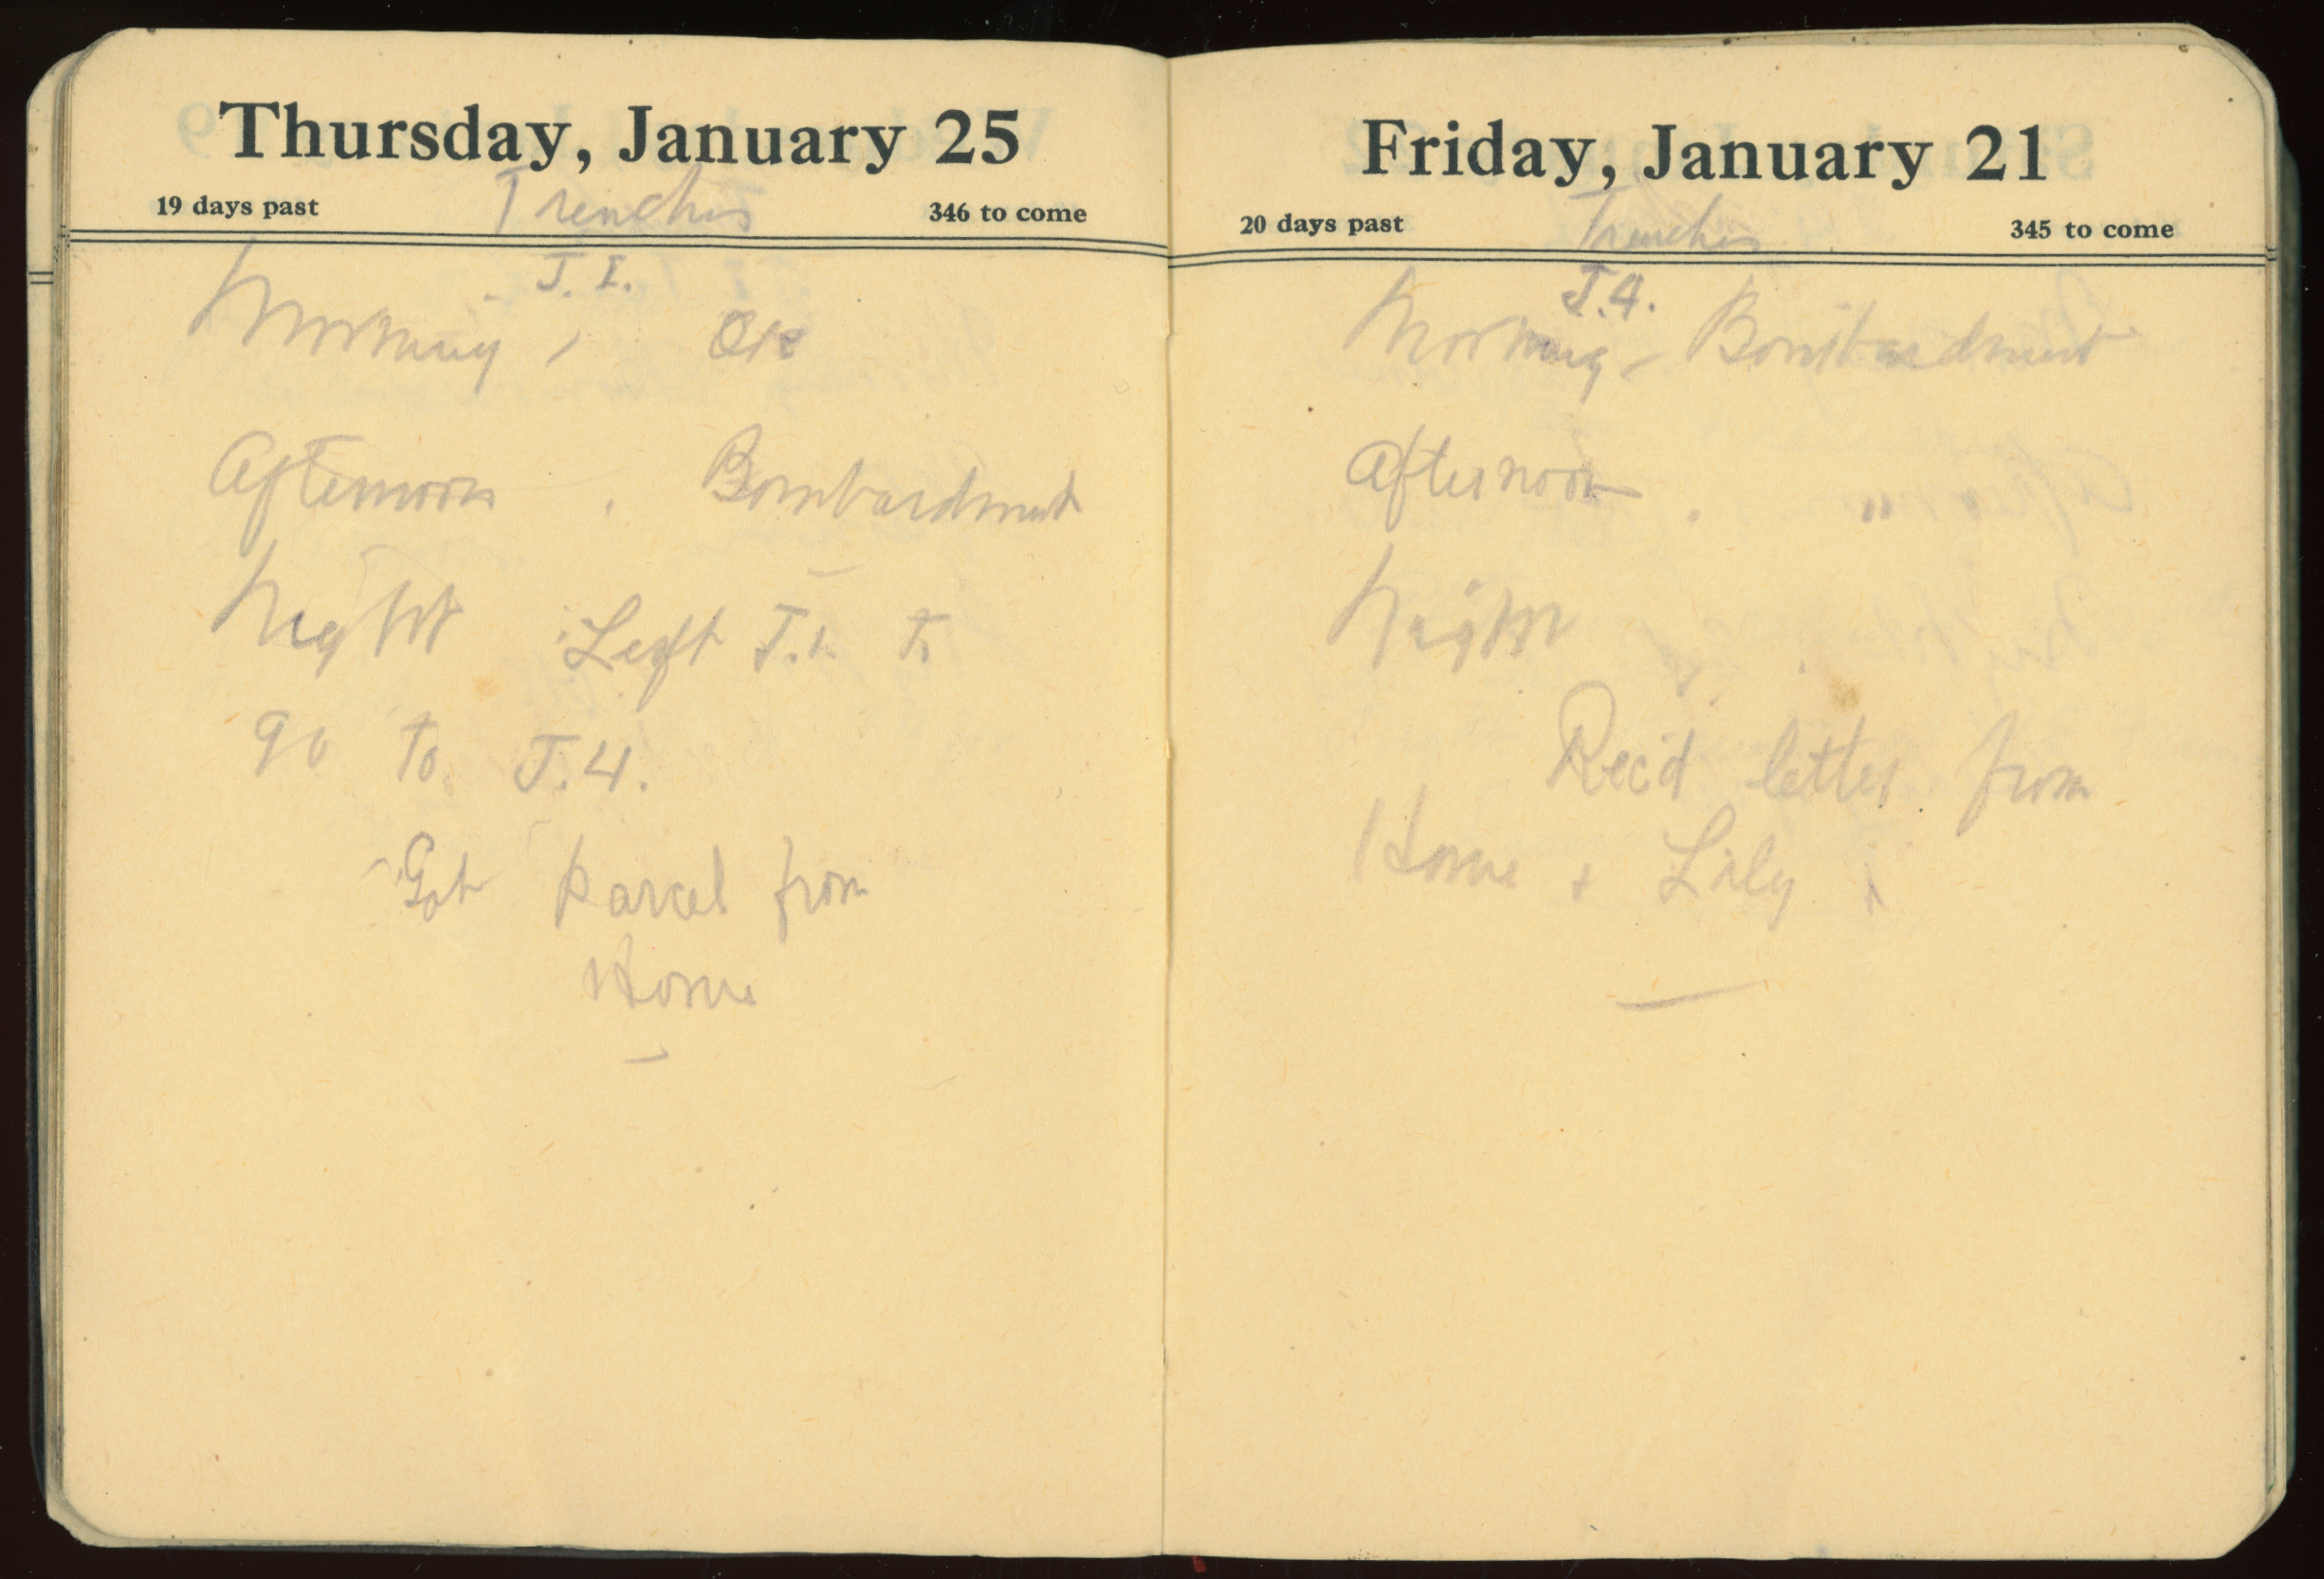 Thursday, January 25
19 days past Trenches 346 to come
J. I.
Morning, OK
Afternoon . Bombardment
Night Left J.1. to
go to J.4.
Got Parcel from
Home
Friday, January 21
20 days past Trenches 345 to come
J.4.
Morning - Bombardment
Afternoon . "
Night
Rec'd letter from
Home + Lily